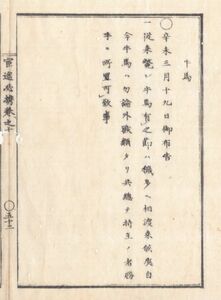 牛馬
○辛未三月十九日御布告
一従来斃牛馬有之節ハ穢多ヘ相渡来候処自
今牛馬ハ勿論外獣類タリ共総テ持主ノ者勝
手ニ所置可致事
官途必携巻之十
五十三